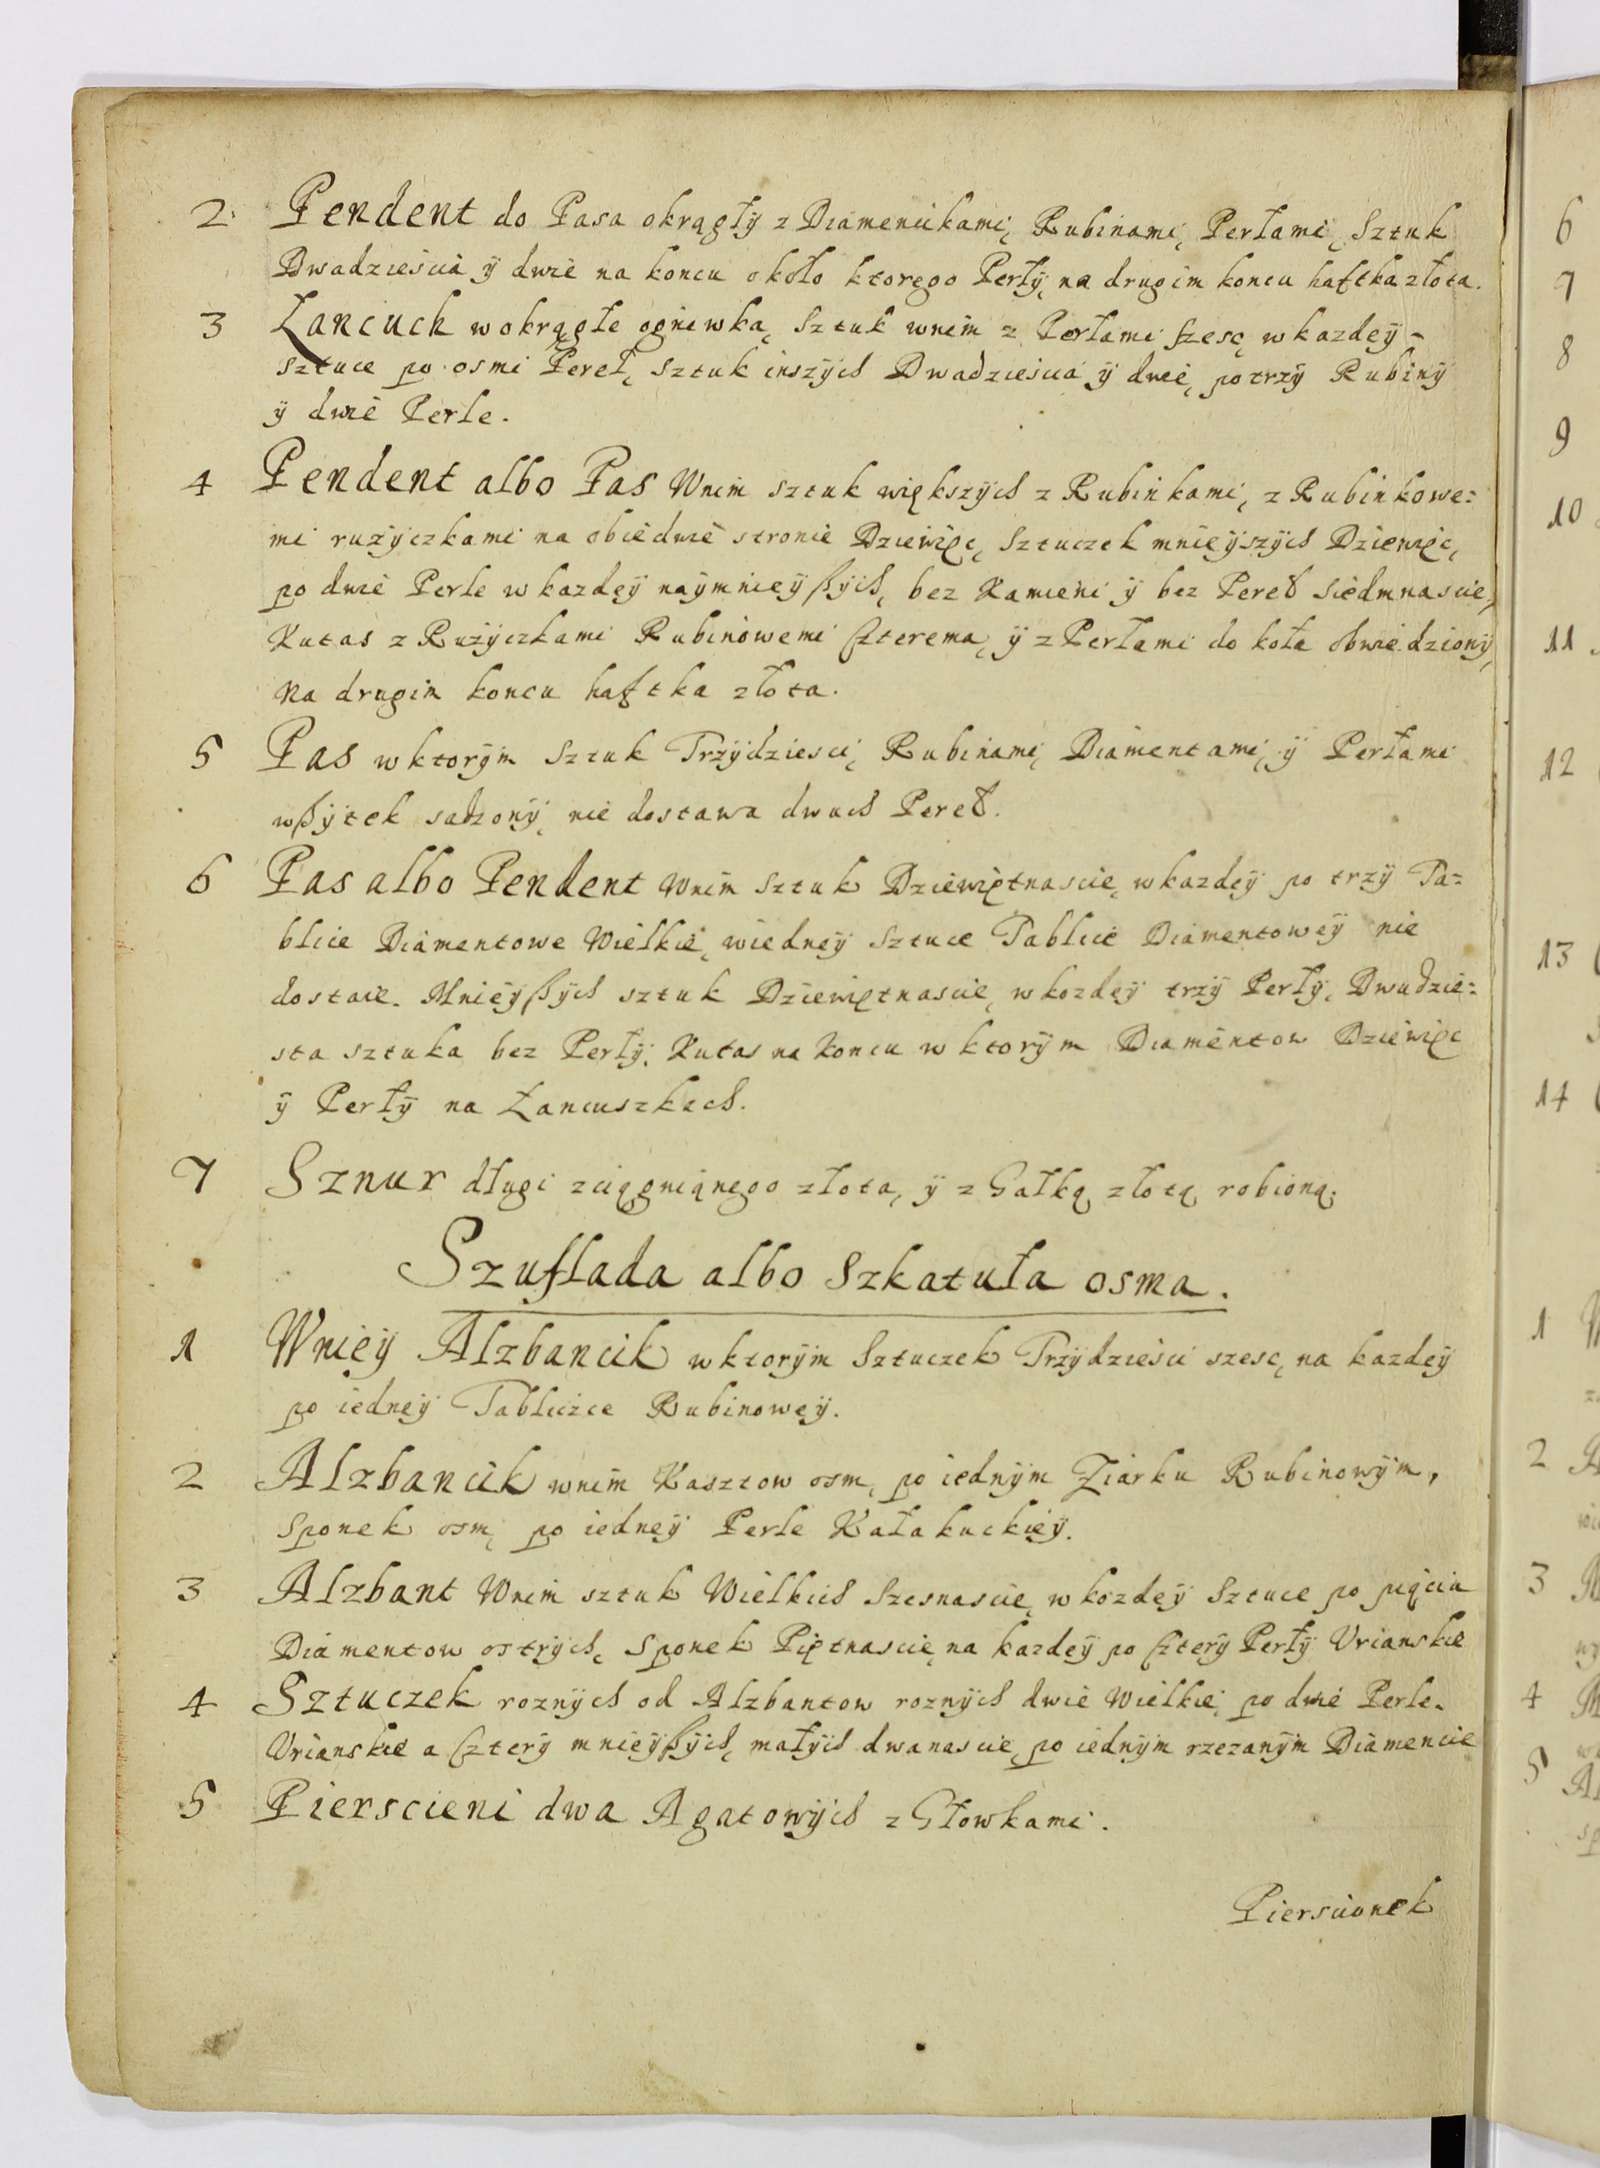 2. Pendent do Pasa okrągły z Diamencikami, Rubinami, Perłami, Sztuk
Dwadziescia ÿ dwie na koncu około ktorego Perłÿ, na drugim koncu haftka złota.
3 Łancuch w okrągłe ogniwka, Sztuk wnim z Perłami szesc, w kazdeÿ
sztuce po osmi Pereł, sztuk inszÿch Dwadziescia ÿ dwie, po trzÿ Rubinÿ
ÿ dwie Perle.
4 Pendent albo Pas Wnim sztuk większÿch z Rubinkami, z Rubinkowe=
mi rużÿczkami na obiedwie stronie Dziewięc, Sztuczek mnieÿszÿch Dziewięc,
po dwie Perle w kazdeÿ naÿmnieÿßÿch, bez Kamieni ÿ bez Pereł siedmnascie,
Kutas z Rużÿczkami Rubinowemi czterema, ÿ z Perłami do koła obwiedzionÿ,
Na drugim koncu haftka złota.
5 Pas w ktorÿm Sztuk Trzÿdziesci, Rubinami, Diamentami, ÿ Perłami
wßÿtek sadzonÿ, nie dostawa dwuch Pereł.
6 Pas albo Pendent wnim Sztuk Dziewiętnascie, w kazdeÿ po trzÿ Ta=
blice Diamentowe Wielkie, wiedneÿ Sztuce Tablice Diamentoweÿ nie
dostaie. Mnieÿßÿch sztuk Dziewiętnascie, w kozdeÿ trzÿ Perłÿ, Dwudzie=
sta sztuka bez Perłÿ. Kutas na Koncu w ktorÿm Diamentow Dziewięc
ÿ Perłÿ na Łancuszkach.
7 Sznur długi zciągniąnego złota, ÿ z Gałką złotą robioną.
Szuflada albo Szkatuła osma.
1 Wnieÿ Alzbancik w ktorÿm Sztuczek Trzÿdziesci szesc, na kazdeÿ
po iedneÿ Tabliczce Rubinoweÿ.
2 Alzbancik wnim Kasztow osm, po iednÿm Ziarku Rubinowÿm,
Sponek osm, po iedneÿ Perle Kałakuckieÿ.
3 Alzbant Wnim sztuk Wielkich Szesnascie, w kozdeÿ Sztuce po pięciu
Diamentow ostrÿch, Sponek Piętnascie, na kazdeÿ po czterÿ Perłÿ Vrianskie
4 Sztuczek roznÿch od Alzbantow roznÿch dwie Wielkie, po dwie Perle
Vrianskie a czterÿ mnieÿßÿch, małÿch dwanascie, po iednÿm rzezanÿm Diamencie
5 Pierscieni dwa Agatowÿch z Głowkami.
Pierscionek
6
7
8
9
10
11
12
13
14
1
2
3
4
5